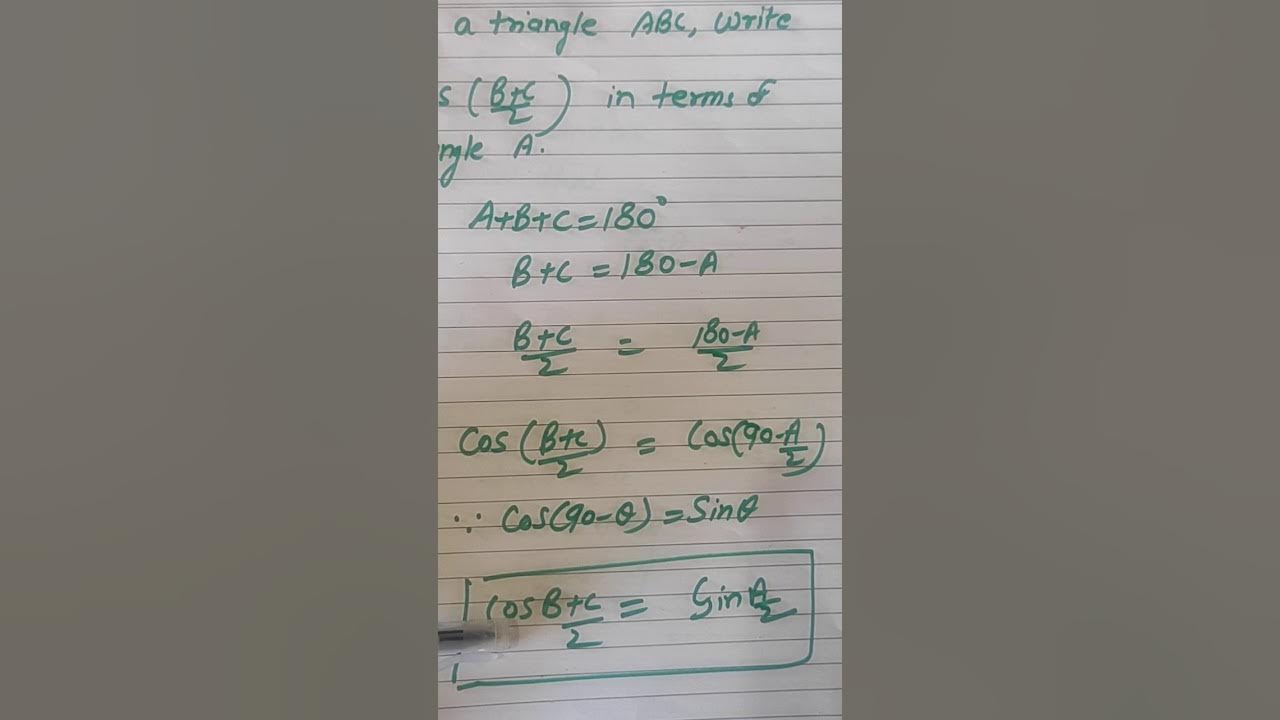 a triangle ABC, Write
s (B+C/2) in terms of
ngle A.
A+B+C=180°
B+C =180-A
B+C/2 = 180-A/2
Cos (B+C/2) = Cos(90-A/2)
∵ Cos(90-θ)=Sinθ
Cos B+C/2 = Sin A/2